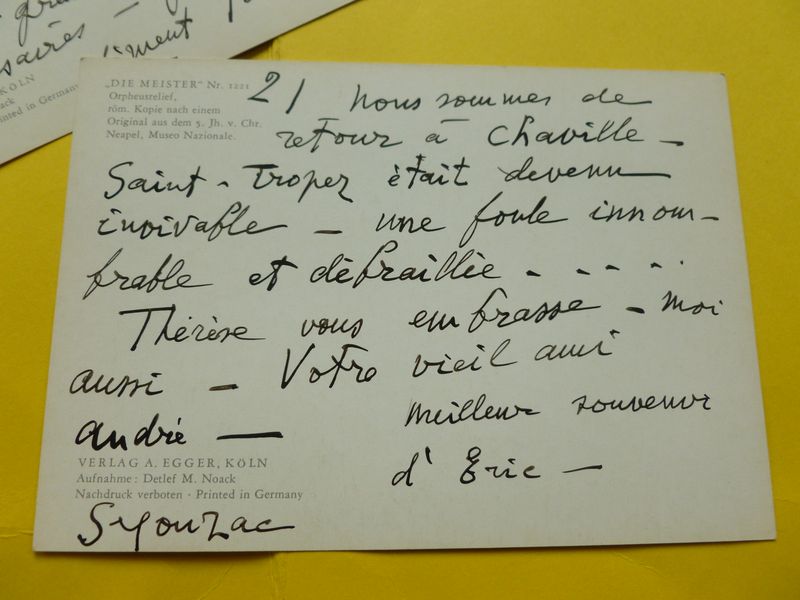 saires -
KÖLN
ack
rinted in Germany
„DIE MEISTER“ Nr. 1221
Orpheusrelief,
röm. Kopie nach einem
Original aus dem 5. Jh. v. Chr.
Neapel, Museo Nazionale.
2/ nous sommes de
retour à Chaville -
Saint-Tropez était devenu
invivable - une foule innom-
brable et débraillée - - - - -
Thérèse vous embrasse - moi
aussi - Votre vieil ami
andré -
meilleur souvenir
d'Eric -
VERLAG A. EGGER, KÖLN
Aufnahme: Detlef M. Noack
Nachdruck verboten · Printed in Germany
Segonzac